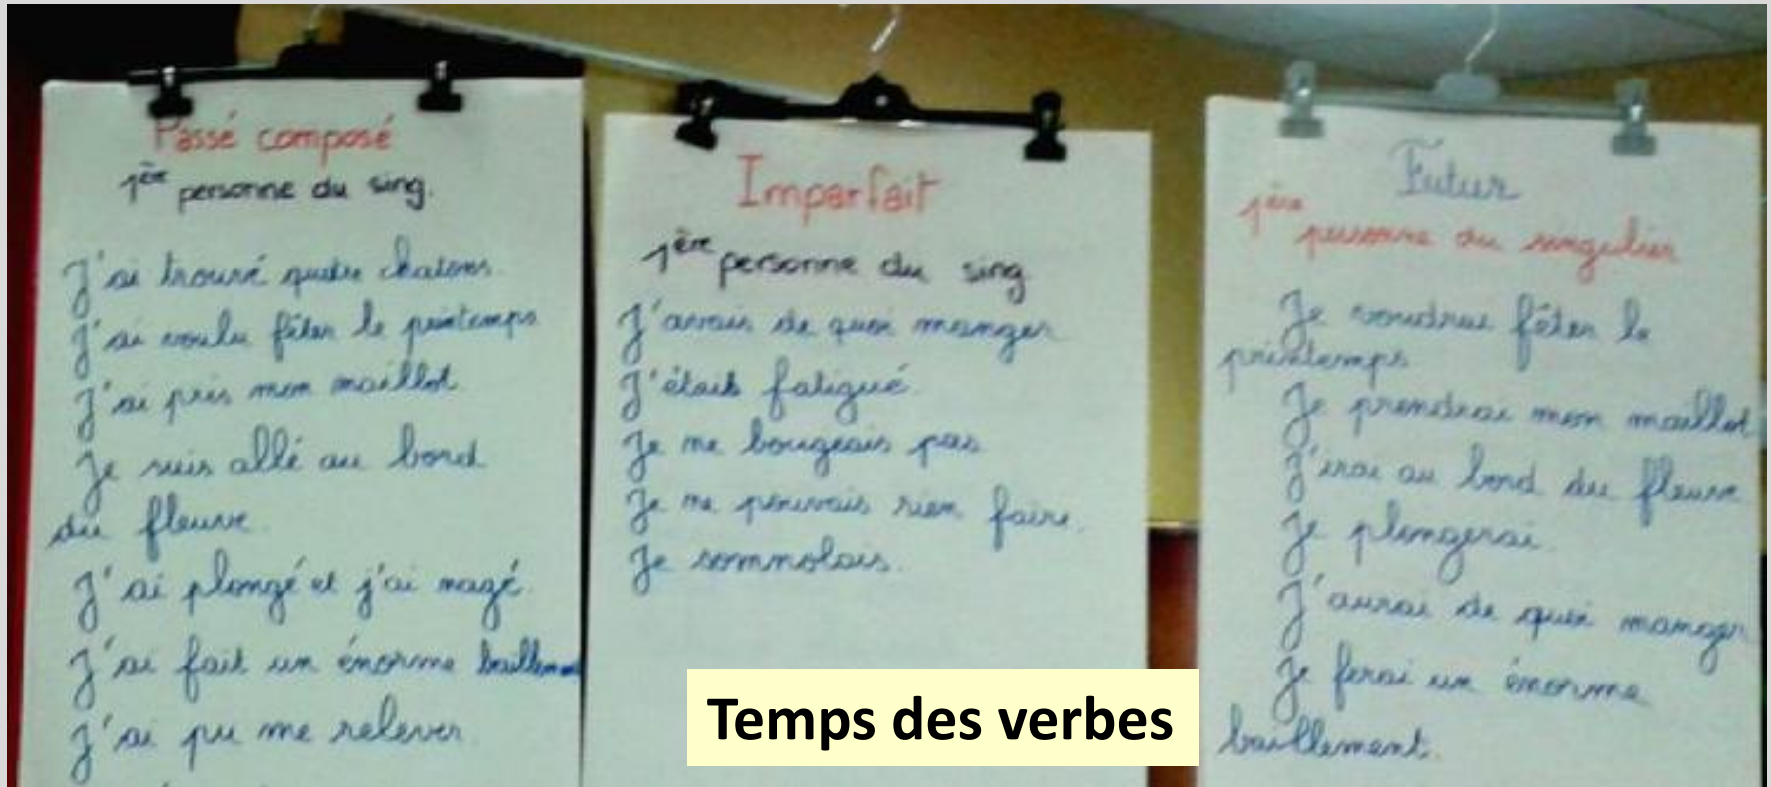 Passé composé
1ère personne du sing.
J'ai trouvé quatre chatons
J'ai voulu fêter le printemps
J'ai pris mon maillot
Je suis allé au bord
du fleuve.
J'ai plongé et j'ai nagé.
J'ai fait un énorme baillement
J'ai pu me relever.
Imparfait
1ère personne du sing
J'avais de quoi manger
J'étais fatigué.
Je ne bougeais pas
Je ne pouvais rien faire.
Je somnolais.
Futur
1ère personne du singulier
Je voudrai fêter le
printemps
Je prendrai mon maillot
J'irai au bord du fleuve
Je plongerai.
J'aurai de quoi manger
Je ferai un énorme
baillement.
Temps des verbes